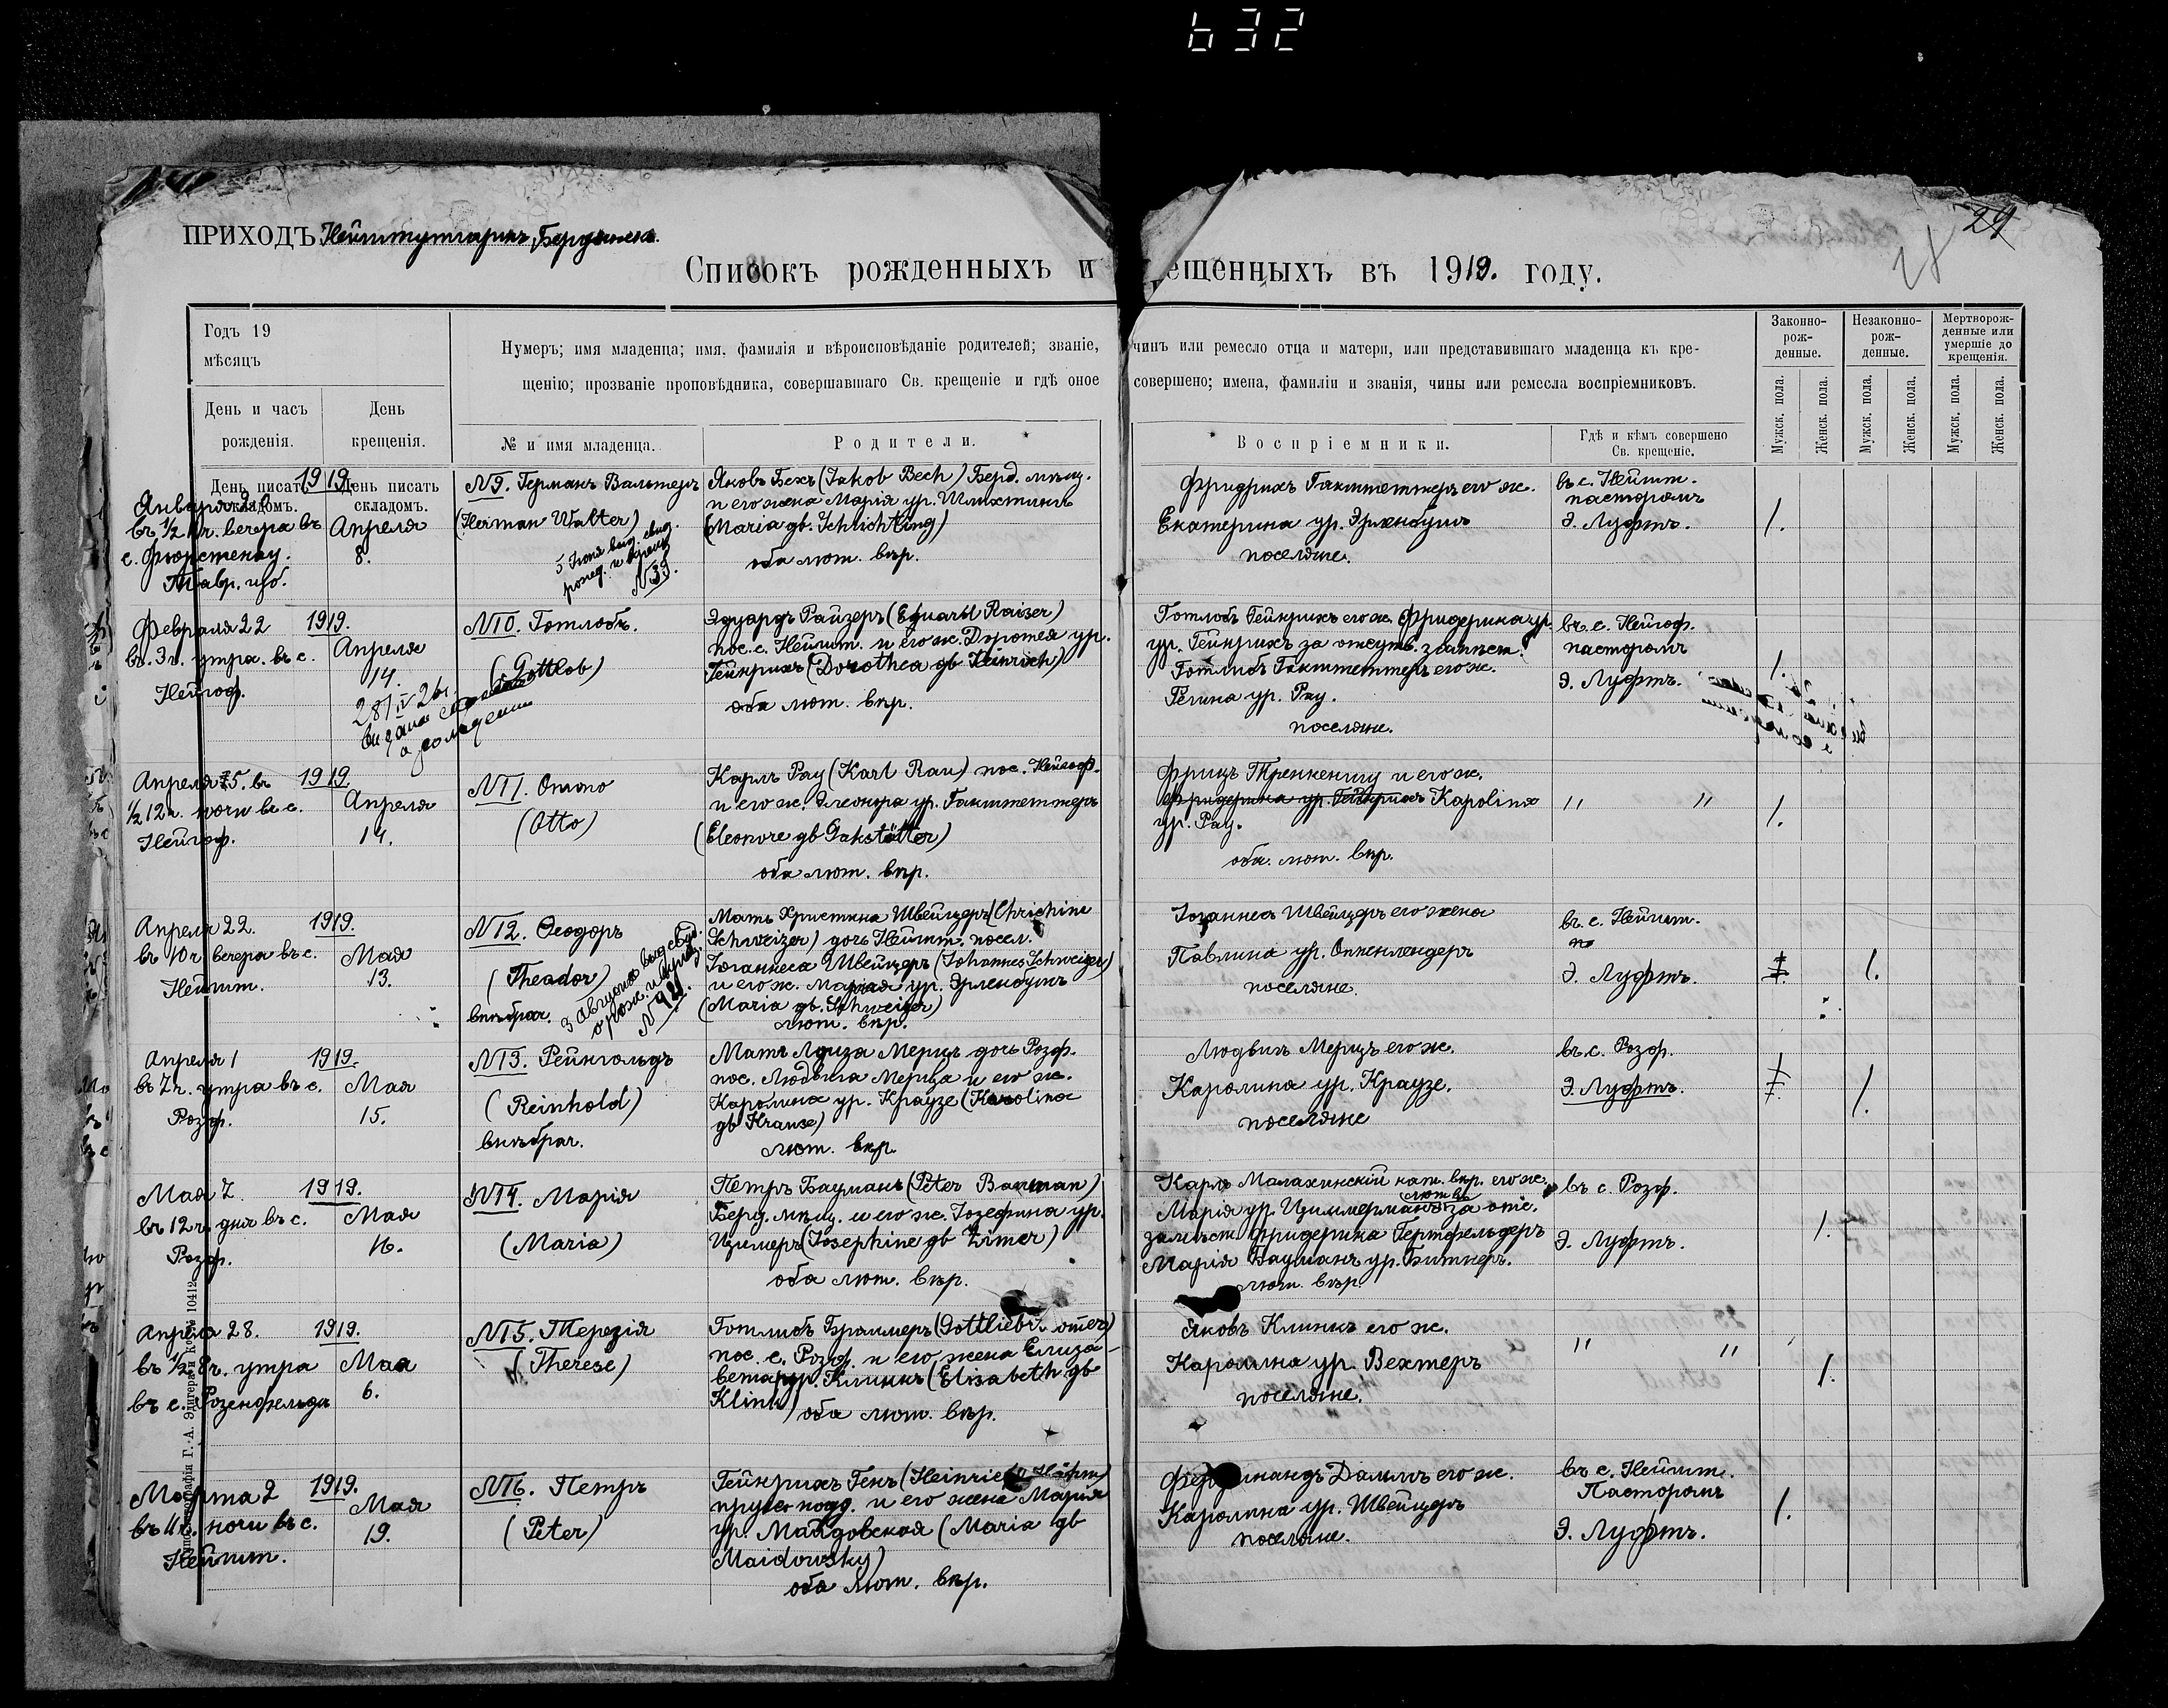 632
29
28
ПРИХОДЪ Нейштутгартъ Бердянскъ.
Списокъ рожденныхъ и
ещенныхъ въ 1919. году.
Годъ 19
мѣсяцъ
День и часъ
рожденія.
День
крещенія.
Нумеръ; имя младенца; имя, фамилія и вѣроисповѣданіе родителей; званіе,
чинъ или ремесло отца и матери, или представившаго младенца къ кре-
щенію; прозваніе проповѣдника, совершавшаго Св. крещеніе и гдѣ оное
совершено; имена, фамиліи и званія, чины или ремесла воспріемниковъ.
№ и имя младенца.
Родители.
Воспріемники.
Гдѣ и кѣмъ совершено
Св. крещеніе.
Законно-
рож-
денные.
Незаконно-
рож-
денные.
Мертворож-
денные или
умершіе до
крещенія.
Мужск. пола.
Женск. пола.
Мужск. пола.
Женск. пола.
Мужск. пола.
Женск. пола.
День писать
складомъ.
День писать
складомъ.
1919.
Января
въ 1/2 ч. вечера въ
с. Фюрстенау.
Тавр. губ.
Апреля
8.
N9. Германъ Вальтеръ
(Herman Walter)
5 Іюня выд. свид.
рожд. и крещ.
N33.
Яковъ Бехъ (Jakob Bech) Берд. мѣщ.
и его жена Марія ур. Шлихтингъ
(Maria gb. Schlichting)
оба лют. вѣр.
Фридрихъ Гакштеттеръ его ж.
Екатерина ур. Эрленбушъ
поселяне.
въ с. Нейшт.
пасторомъ
Э. Луфтъ.
1.
Февраля 22
въ 3 ч. утра. въ с.
Нейгоф.
1919.
Апреля
14.
28/IV 26г.
выдана
о рождении
N10. Готлобъ.
(Gottlob)
Эдуардъ Райзеръ (Eduard Raiser)
пос. с. Нейшт. и его ж. Доротея ур.
Гейнрихъ (Dorothea gb Heinrich)
оба лют. вѣр.
Готлобъ Гейнрихъ его ж. Фридерика ур.
ур. Гейнрихъ за отсутв. замѣст.
Готлибъ Гакштеттеръ его ж.
Регина ур. Рау.
поселяне.
въ с. Нейгоф.
пасторомъ
Э. Луфтъ.
1.
Апреля 5. въ
1/2 12 ч. ночи въ с.
Нейгоф.
1919.
Апреля
14.
N11. Отто
(Otto)
Карлъ Рау (Karl Rau) пос. Нейгоф.
и его ж. Элеонора ур. Гакштеттеръ
(Eleonore gb Gakstätter)
оба лют. вѣр.
Фрицъ Тренкеншу и его ж.
Фридерика ур. Гейнрихъ Каролина
ур. Рау.
оба. лют. вѣр.
" "
1.
Апреля 22.
въ 10 ч. вечера въ с.
Нейшт.
1919.
Мая
13.
N12. Ѳеодоръ
(Theodor)
внѣбрач.
3 Августа выд. свид.
о рож. и крещ.
N 92.
Мать Христина Швейцеръ (Chrichine
Schweizer) дочь Нейшт. посел.
Іоганнеса Швейцеръ (Johannes Schweizer)
и его ж. Марія ур. Эрленбушъ
(Maria gb. Schweizer)
лют. вѣр.
Іоганнесъ Швейцеръ его жена
Павлина ур. Опенлендеръ
поселяне.
въ с. Нейшт.
Э. Луфтъ.
1.
Апреля 1
въ 7 ч. утра въ с.
Розф.
1919.
Мая
15.
N13. Рейнгольдъ
(Reinhold)
внѣбрач.
Мать Луиза Мерцъ дочь Розф.
пос. Людвига Мерца и его ж.
Каролина ур. Краузе (Karolina
gb Krause)
лют. вѣр.
Людвигъ Мерцъ его ж.
Каролина ур. Краузе.
поселяне
въ с. Розф.
Э. Луфтъ.
1.
Мая 7.
въ 12 ч. дня въ с.
Розф.
1919.
Мая
16.
N14. Марія
(Maria)
Петръ Бауманъ (Peter Bauman)
Берд. мѣщ. и его ж. Іозефина ур.
Цимеръ (Josephine gb Zimer)
оба лют. вѣр.
Карлъ Малахинскій кат. вѣр. его ж.
Марія ур. Циммерманъ за отс.
замѣст. Фридерика Гертфельдеръ
Марія Бауманъ ур. Битнеръ.
лют. вѣр.
въ с. Розф.
Э. Луфтъ.
1.
Апреля 28.
въ 1/2 8 ч. утра
въ с. Розенфельдъ
1919.
Мая
6.
N15. Терезія
(Therese)
Готлибъ Браумеръ (Gottlieb
пос. с. Розф. и его жена Елиза-
вета ур. Клинкъ (Elisabeth gb
Klink)
оба лют. вѣр.
Яковъ Клинкъ его ж.
Каролина ур. Вехтеръ
поселяне.
" "
1.
Марта 2
въ 11 ч. ночи въ с.
Нейшт.
1919.
Мая
19.
N16. Петръ
(Peter)
Гейнрихъ Генъ (Heinrich
прусс. подд. и его жена Марія
ур. Майдовская (Maria gb
Maidowsky)
оба лют. вѣр.
Фердинандъ Даммъ его ж.
Каролина ур. Швейцеръ
поселяне.
въ с. Нейшт.
Пасторомъ
Э. Луфтъ.
1.
Типографіи Г. А. Эдигеръ и Ко. № 10412